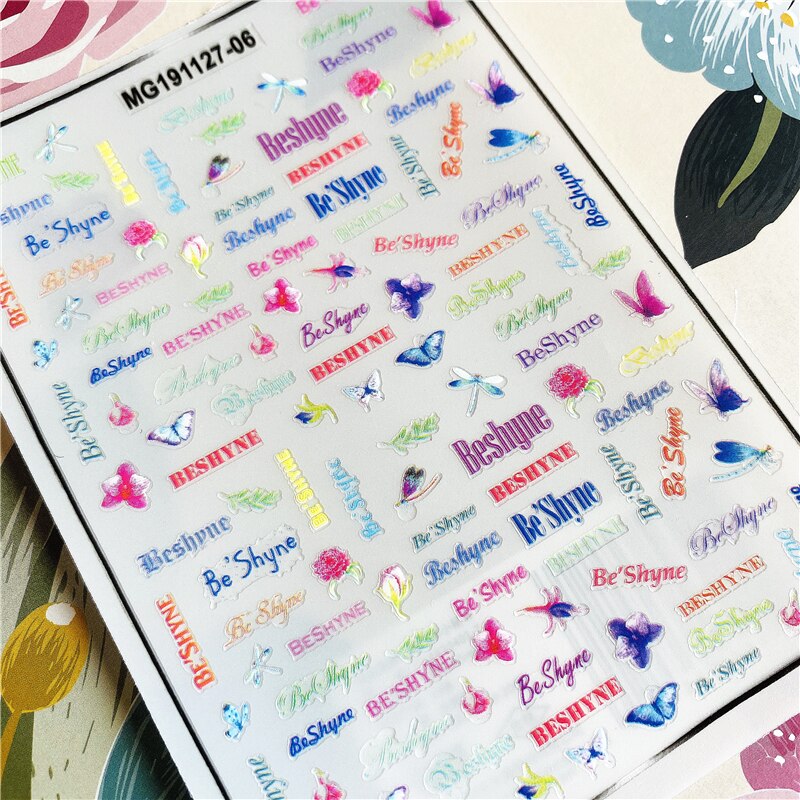 MG191127-06
BeShyne
BeShyne
Beshyne
Beshyne
Beshyne
Beshyne
Be'Shyne
BESHYNE
Be'Shyne
Be'Shyne
Be'Shyne
BeShyne
Be'Shyne
Beshyne
BESHYNE
BeShyne
Be'Shyne
Be'Shyne
Be'Shyne
BESHYNE
Be'Shyne
BESHYNE
BeShyne
BeShyne
BE'SHYNE
BeShyne
BeShyne
BeShyne
BeShyne
BESHYNE
BeShyne
Beshyne
Beshyne
Be'Shyne
Beshyne
Beshyne
Be'Shyne
BESHYNE
BESHYNE
BE'SHYNE
Beshyne
Be'Shyne
Be'Shyne
Be'Shyne
Beshyne
Be'Shyne
Beshyne
BESHYNE
BeShyne
BE'SHYNE
Be'Shyne
BESHYNE
Be'Shyne
Be'Shyne
BESHYNE
BeShyne
BeShyne
BE'SHYNE
BeShyne
BeShyne
BeShyne
Beshyne
Beshyne
BESHYNE